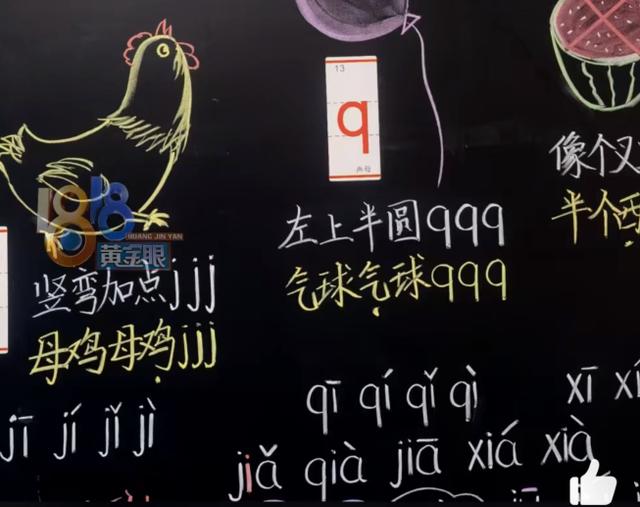 1818
HUANG JIN YAN
黄金眼
竖弯加点jjj
母鸡母鸡jjj
jī jí jǐ jì
13
q
声母
左上半圆qqq
气球气球qqq
qī qí qǐ qì
像个叉
半个西
xī xí
jiǎ qià jiā xiá xià